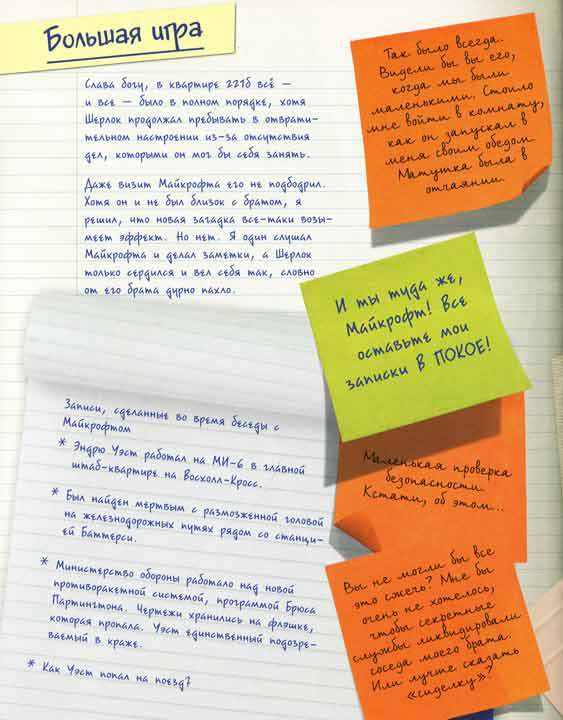 Большая игра
Слава богу, в квартире 221б всё —
и все — было в полном порядке, хотя
Шерлок продолжал пребывать в отврати-
тельном настроении из-за отсутствия
дел, которыми он мог бы себя занять.
Даже визит Майкрофта его не подбодрил.
Хотя он и не был близок с братом, я
решил, что новая загадка все-таки возы-
меет эффект. Но нет. Я один слушал
Майкрофта и делал заметки, а Шерлок
только сердился и вел себя так, словно
от его брата дурно пахло.
Так было всегда.
Видели бы вы его,
когда мы были
маленькими. Стоило
мне войти в комнату,
как он запускал в
меня своим обедом.
Матушка была в
отчаянии.
И ты туда же,
Майкрофт! Все
оставьте мои
записки В ПОКОЕ!
Записи, сделанные во время беседы с
Майкрофтом
* Эндрю Уэст работал на МИ-6 в главной
штаб-квартире на Восхолл-Кросс.
* Был найден мертвым с размозженной головой
на железнодорожных путях рядом со станци-
ей Баттерси.
* Министерство обороны работало над новой
противоракетной системой, программой Брюса
Партингтона. Чертежи хранились на флэшке,
которая пропала. Уэст единственный подозре-
ваемый в краже.
* Как Уэст попал на поезд?
Маленькая проверка
безопасности.
Кстати, об этом...
Вы не могли бы все
это сжечь? Мне бы
очень не хотелось,
чтобы секретные
службы ликвидировали
соседа моего брата.
Или лучше сказать
«сиделку»?